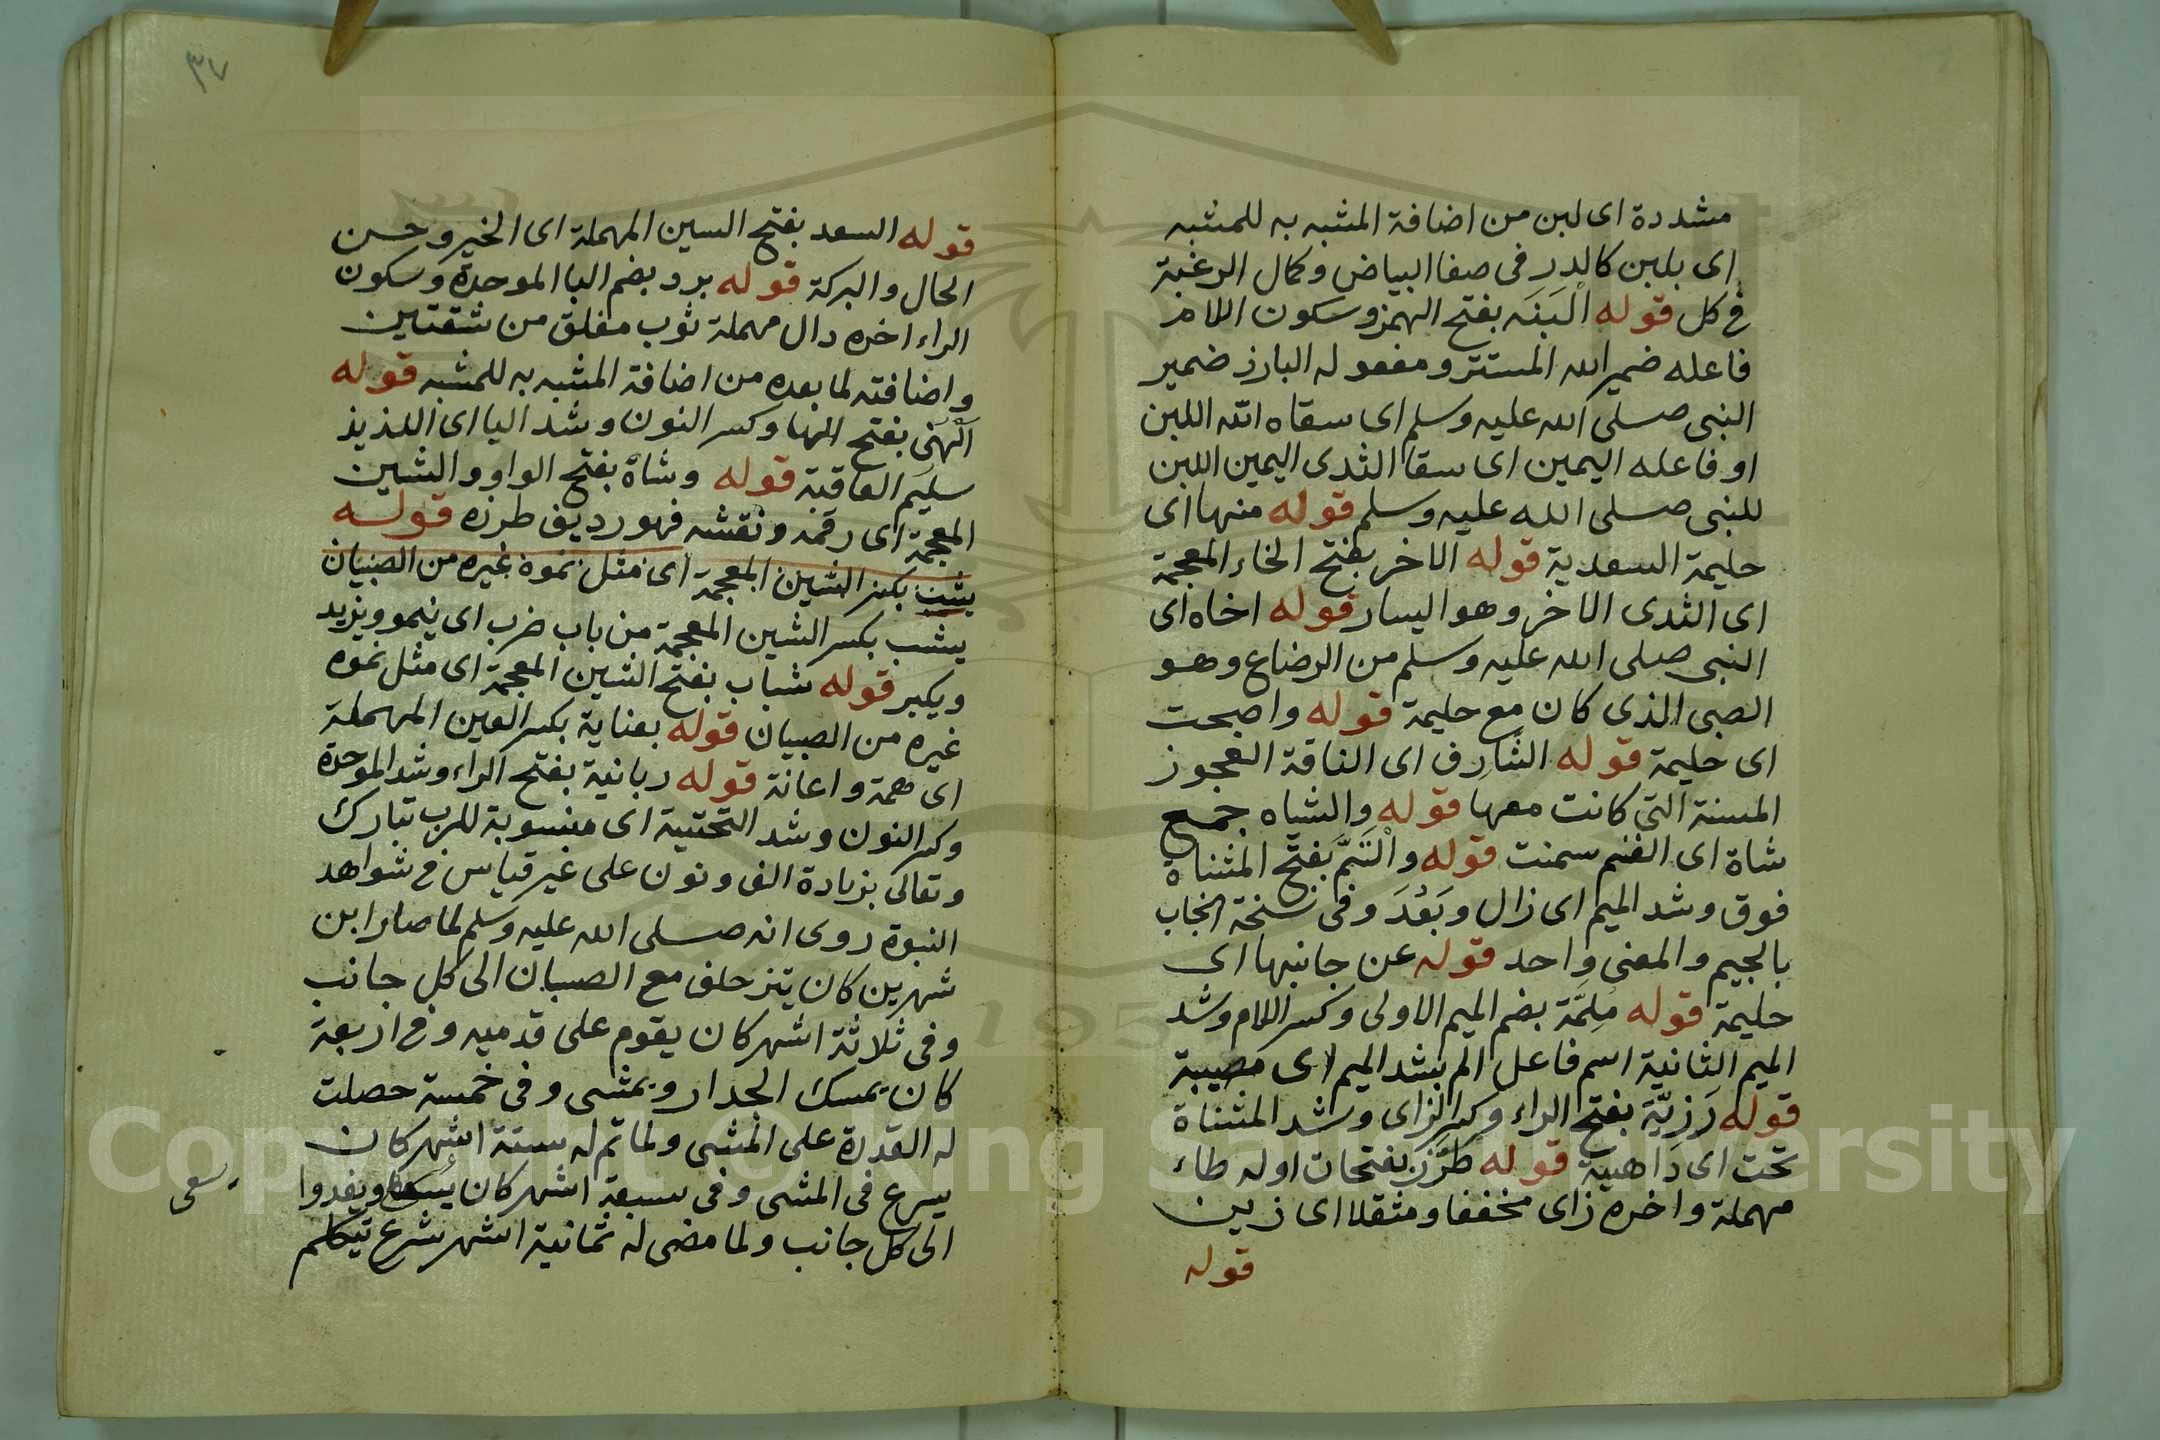 مشددة اى لبن من اضافة المشبه به للمشبه
اى بلبن كالدر فى صفا البياض وكمال الرغبة
فى كل قوله البنه بفتح الهمز وسكون اللام
فاعله ضمير الله المستتر ومفعوله البارز ضمير
النبى صلى الله عليه وسلم اى سقاه الله اللبن
او فاعله اليمين اى سقا الثدى اليمين اللبن
للنبى صلى الله عليه وسلم قوله منها اى
حليمة السعدية قوله الاخر بفتح الخاء المعجمة
اى الثدى الاخر وهو اليسار قوله اخاه اى
النبى صلى الله عليه وسلم من الرضاع وهو
الصبى الذى كان مع حليمة قوله واصبحت
اى حليمة قوله الشارف اى الناقة العجوز
المسنة التى كانت معها قوله والشياه جمع
شاة اى الغنم سمنت قوله والتم بفتح المثناة
فوق وشد الميم اى زال وبعد وفى نسخة انجاب
بالجيم والمعنى واحد قوله عن جانبها اى
حليمة قوله ملمة بضم الميم الاولى وكسر اللام وشد
الميم الثانية اسم فاعل الم بشد الميم اى مصيبة
قوله رزية بفتح الراء وكسر الزاى وشد المثناة
تحت اى داهية قوله طرز بفتحات اوله طاء
مهملة واخره زاى مخففا ومثقلا اى زين
قوله
٣٧
قوله السعد بفتح السين المهملة اى الخير وحسن
الحال والبركة قوله برد بضم البا الموحدة وسكون
الراء اخره دال مهملة ثوب مفلق من شقتين
واضافته لما بعده من اضافة المشبه به للمشبه قوله
الهنى بفتح الها وكسر النون وشد اليا اى اللذيذ
سليم العاقبة قوله وشاه بفتح الواو والشين
المعجمة اى رقمه ونقشه فهو رديف طرزه قوله
يشب بكسر الشين المعجمة اى مثل نموه غيره من الصبيان
يشب بكسر الشين المعجمة من باب ضرب اى ينمو ويزيد
ويكبر قوله شباب بفتح الشين المعجمة اى مثل نموه
غيره من الصبيان قوله بعناية بكسر العين المهملة
اى همة واعانة قوله ربانية بفتح الراء وشد الموحدة
وكسر النون وشد التحتية اى منسوبة للرب تبارك
وتعالى بزيادة الف ونون على غير قياس فى شواهد
النبوة روى انه صلى الله عليه وسلم لما صار ابن
شهرين كان يتزحلف مع الصبيان الى كل جانب
وفى ثلاثة اشهر كان يقوم على قدميه وفى اربعة
كان يمسك الجدار ويمشى وفى خمسة حصلت
له القدرة على المشى ولما تم له ستة اشهر كان
يسرع فى المشى وفى سبعة اشهر كان ويغدوا
يسعى
الى كل جانب ولما مضى له ثمانية اشهر شرع يتكلم
Copyright © King Saud University
1957